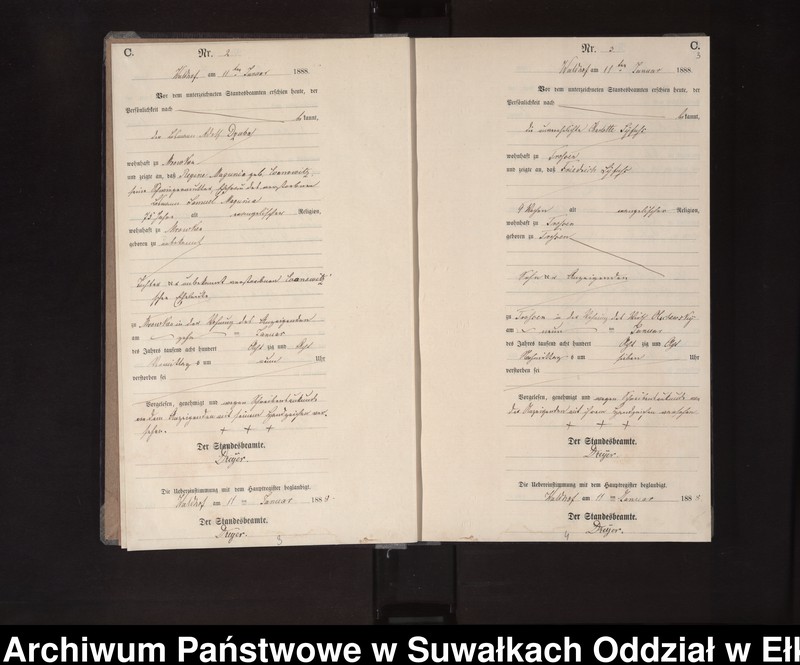 C.
Nr. 2
Waldhof am 11 ten Januar 1888.
Vor dem unterzeichneten Standesbeamten erschien heute, der
Persönlichkeit nach
bekannt,
der Losmann Adolf
wohnhaft zu Mrowken
und zeigte an, daß Regine Magunia geb.
seine Schwiegermutter, Ehefrau des verstorbenen
Losmann Samuel Magunia
75 Jahre alt evangelischer Religion,
wohnhaft zu Mrowken
geboren zu unbekannt
Tochter der unbekannt verstorbenen
schen Eheleute
zu Mrowken in der Wohnung des Anzeigenden
am zehn ten Januar
des Jahres tausend acht hundert Acht zig und Acht
Vormittag s um neun Uhr
verstorben sei
Vorgelesen, genehmigt und wegen Schreibensunkunde
von dem Anzeigenden mit seinem Handzeichen ver-
sehen. + + +
Der Standesbeamte.
Dreyer.
Die Uebereinstimmung mit dem Hauptregister beglaubigt.
Waldhof am 11 ten Januar 1888.
Der Standesbeamte.
Dreyer.
3
C.
Nr. 3
3
Waldhof am 11 ten Januar 1888
Vor dem unterzeichneten Standesbeamten erschien heute, der
Persönlichkeit nach
bekannt,
die unverehelichte Charlotte
wohnhaft zu Trossen
und zeigte an, daß Friedrich
4 Wochen alt evangelischer Religion,
wohnhaft zu Trossen
geboren zu Trossen
Sohn der Anzeigenden
zu Trossen in der Wohnung des Wirth
am neun ten Januar
des Jahres tausend acht hundert Acht zig und Acht
Nachmittag s um sieben Uhr
verstorben sei
Vorgelesen, genehmigt und wegen Schreibensunkunde von
der Anzeigenden mit ihrem Handzeichen versehen
+ + +
Der Standesbeamte.
Dreyer.
Die Uebereinstimmung mit dem Hauptregister beglaubigt.
Waldhof am 11 ten Januar 1888
Der Standesbeamte.
Dreyer.
4
Archiwum Państwowe w Suwałkach Oddział w Ełk